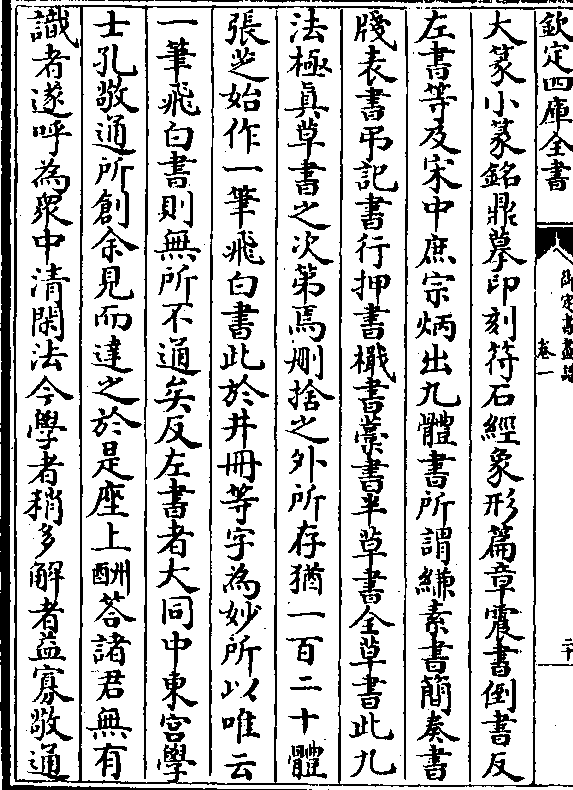 欽定四庫全書
御定書畫譜
卷一
二十
大篆小篆銘鼎摹印刻符石經象形篇章震書倒書反
左書等及宋中庶宗炳出九體書所謂縑素書簡奏書
牋表書弔記書行押書檝書藁書半草書全草書此九
法極真草書之次第焉刪捨之外所存猶一百二十體
張芝始作一筆飛白書此於井冊等字為妙所以唯云
一筆飛白書則無所不通矣反左書者大同中東宮學
士孔敬通所創余見而達之於是座上酬答諸君無有
識者遂呼為衆中清閑法今學者稍多解者益寡敬通